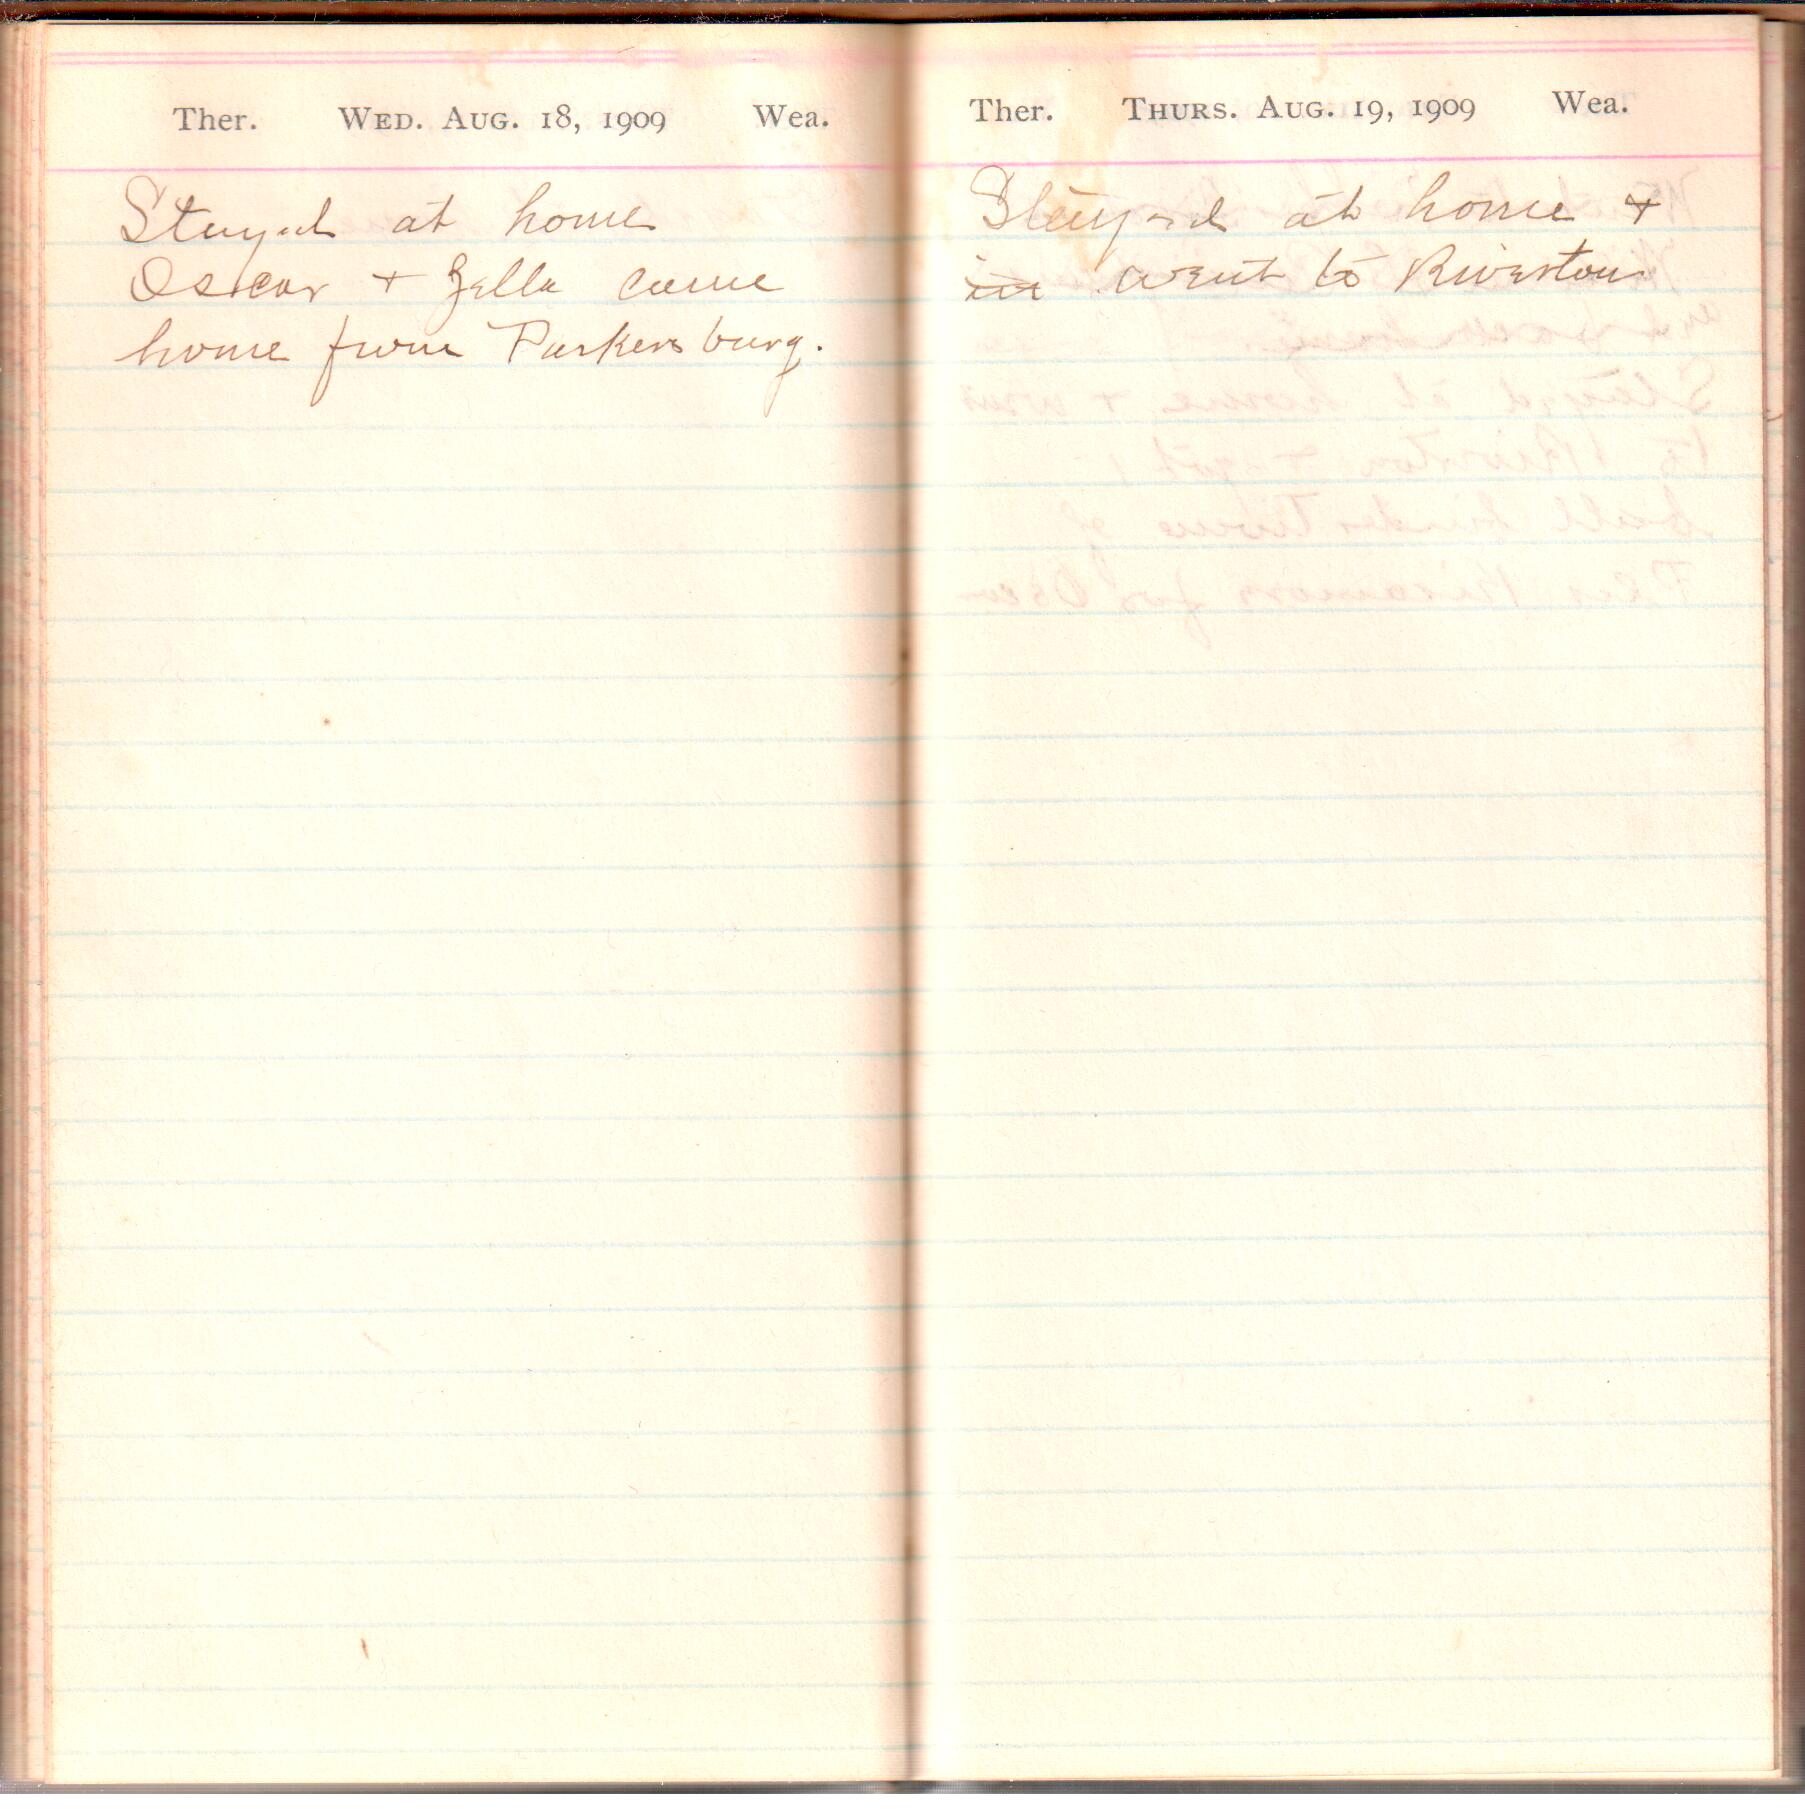 Ther. WED. AUG. 18, 1909 Wea.
Stayed at home
Oscar + Zella came
home from Parkersburg.
Ther. THURS. AUG. 19, 1909 Wea.
Stayed at home +
went to Riverton